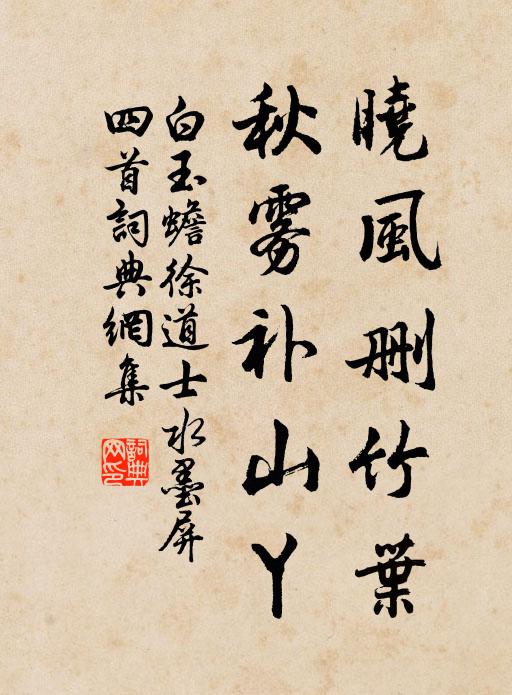 曉風刪竹葉
秋雾补山丫
白玉蟾徐道士水墨屏
四首詞典網集
詞典网印